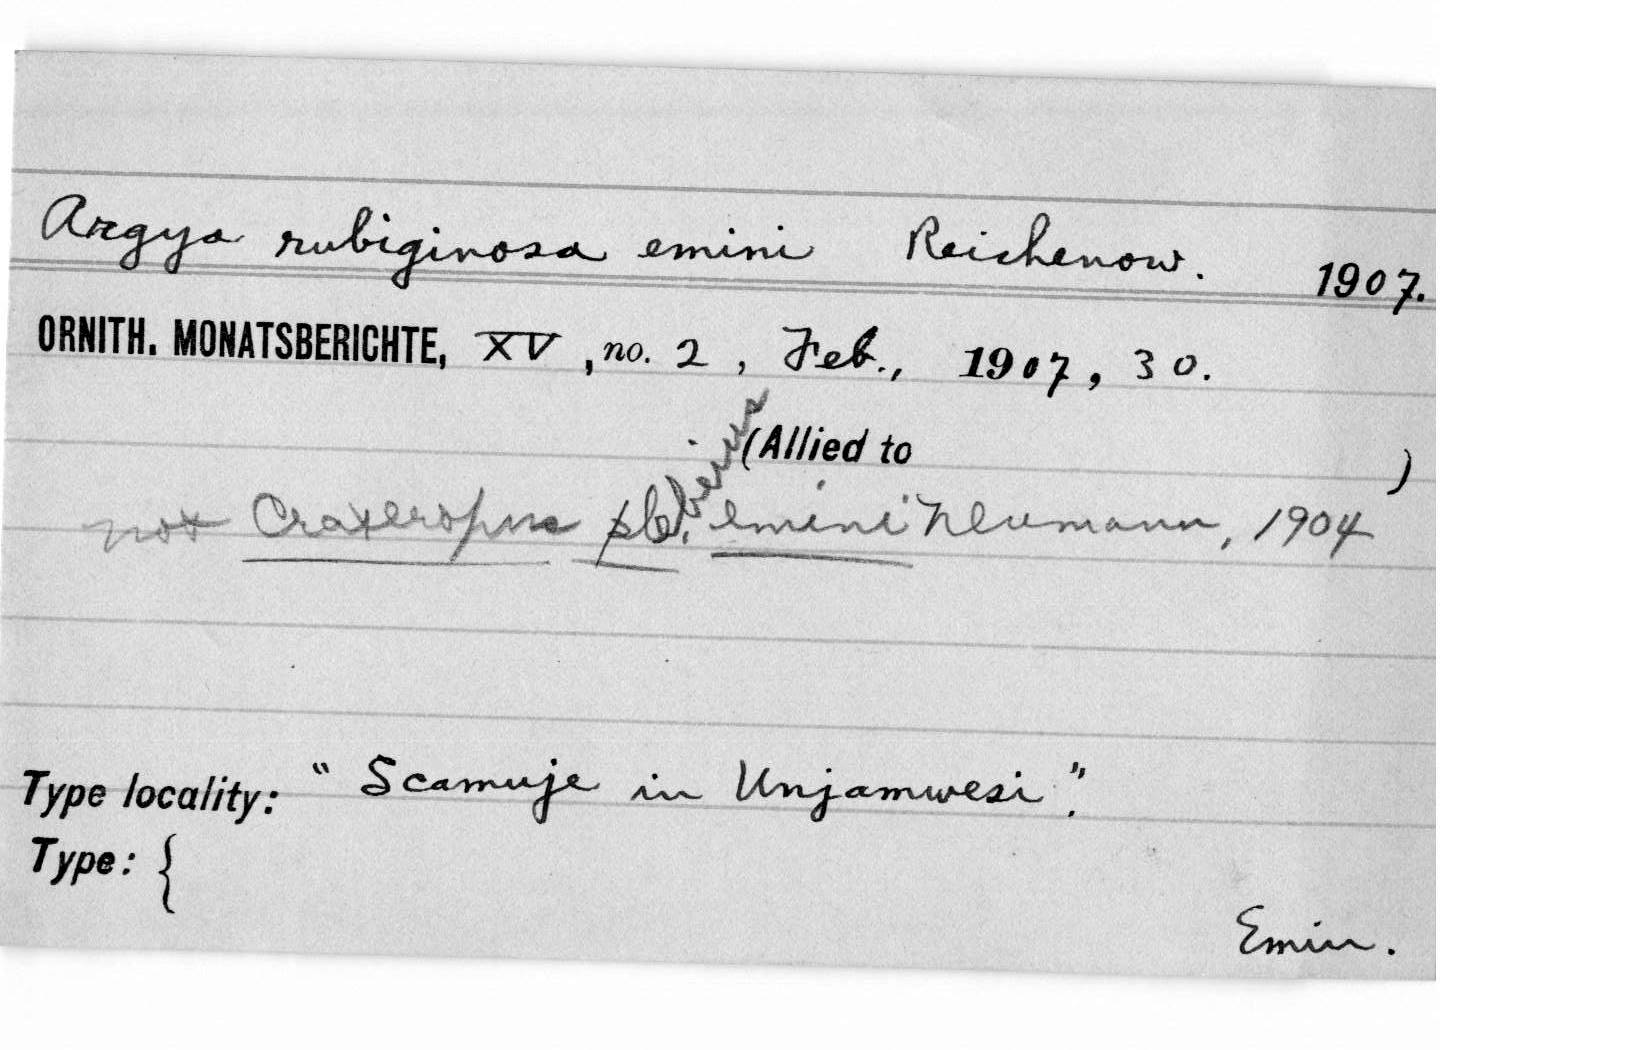 Argya rubiginosa emini Reichenow. 1907.
ORNITH. MONATSBERICHTE, XV, no. 2, Feb., 1907, 30.
(Allied to )
not Crateropus pleb. emini Neumann, 1904
Type locality: "Scamuje in Unjamwesi".
Type: {
Emin.